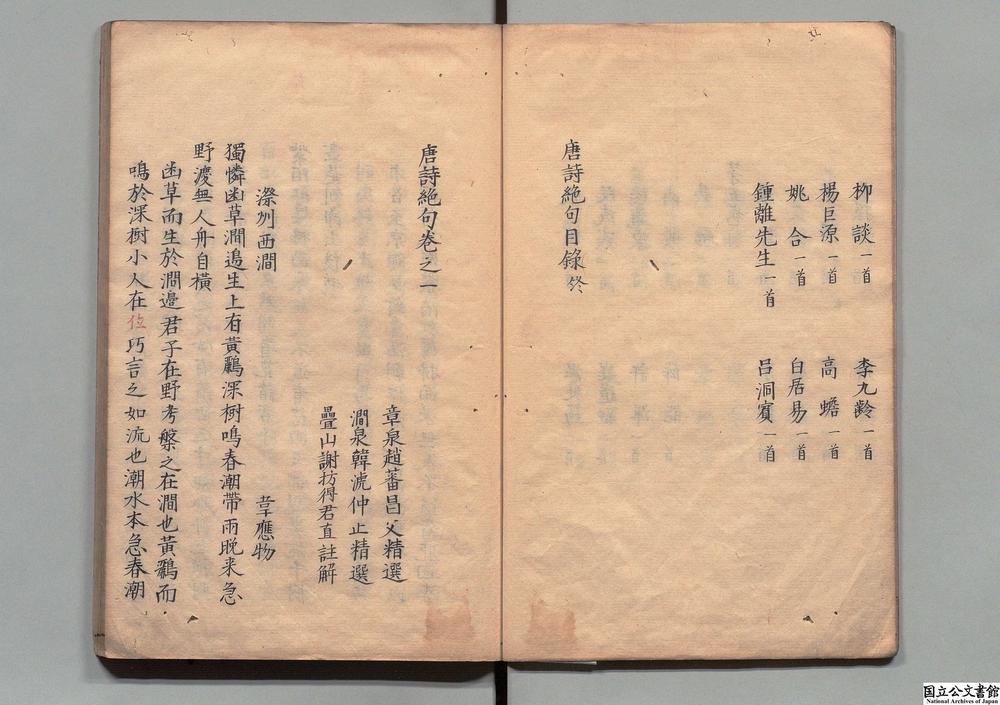 柳談一首　李九齡一首
楊巨源一首　高蟾一首
姚合一首　白居易一首
鍾離先生一首　呂洞賓一首
唐詩絶句目錄終
唐詩絶句卷之一
章泉趙蕃昌父精選
澗泉韓淲仲止精選
疊山謝枋得君直註解
滁州西澗　韋應物
獨憐幽草澗邉生上有黃鸝深樹鳴春潮帶雨晚来急
野渡無人舟自橫
幽草而生於澗邊君子在野考槃之在澗也黃鸝而
鳴於深樹小人在位巧言之如流也潮水本急春潮
国立公文書館
National Archives of Japan